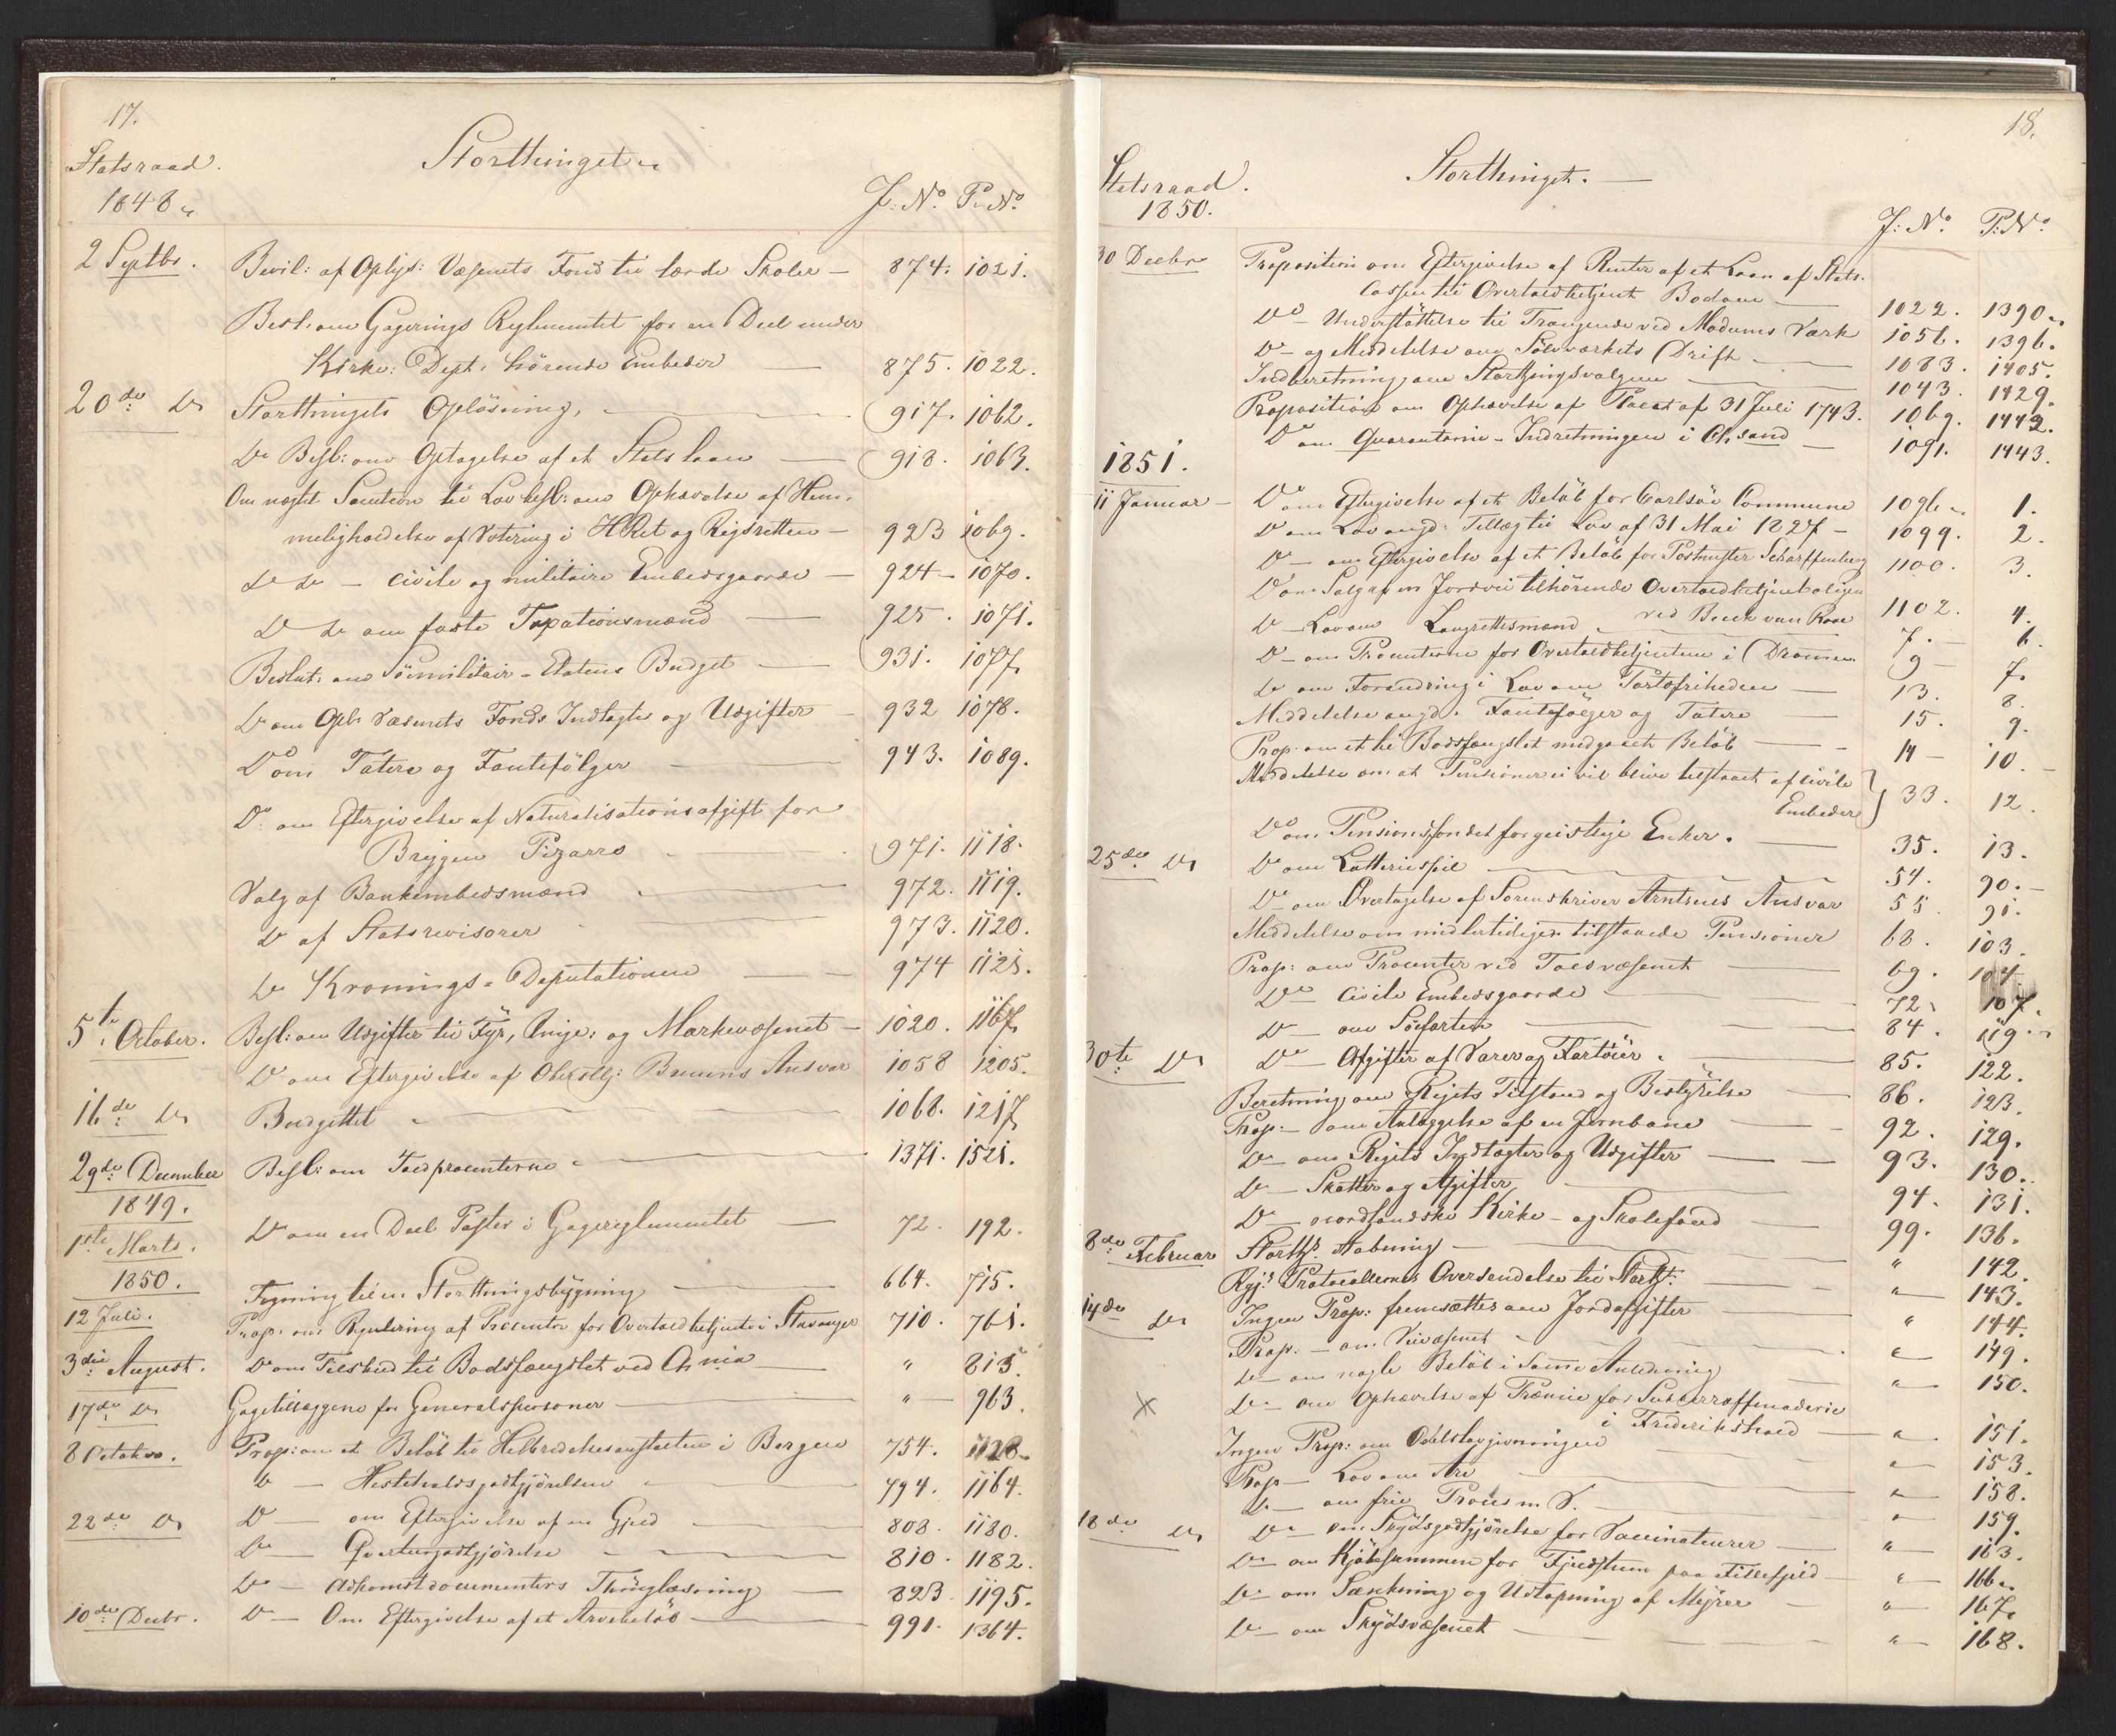 17.
Statsraad.
Storthinget.
1848.
J: No. P. No.
2 Septbr. Bevil: af Oplys: Væsenets Fond til lærde Skoler — 874. 1021.
Besl: om Gagerings Reglementet for en Deel under
Kirke: Dept. hörende Embeder — 875. 1022.
20de Do Storthingets Oplösning. — 917. 1062.
Do Besl: om Optagelse af et Statslaan — 918. 1063.
Om nægtet Sanction til Lovbesl: om Ophævelse af Hem-
meligholdelse af Votering i HRet og Rigsretten — 923 1069.
Do Do — civile og militaire Embedsgaarde — 924 — 1070.
Do Do om faste Taxationsmænd — 925. 1071.
Beslut: om Sömilitair-Etatens Budget — 931. 1077.
Do om Opl. Væsenets Fonds Indtægter og Udgifter — 932 1078.
Do om Tatere og Fantefölger — 943. 1089.
Do om Eftergivelse af Naturalisationsafgift for
Briggen Pizarro — 971. 1118.
Valg af Bankembedsmænd — 972. 1119.
Do af Statsrevisorer — 973. 1120.
Do Kronings-Deputationen — 974 1121.
5te October. Besl: om Udgifter til Fyr, og Mærkevæsenet — 1020. 1167.
Do om Eftergivelse af Obersltl: Bruuns Ansvar 1058 1205.
16de Do Budgettet — 1068. 1217.
29de December Besl: om Toldprocenterne — 1371. 1521.
1849.
1ste Marts. Do om en Deel Poster i Gagereglementet — 72. 192.
1850.
12 Juli. Tegning til en Storthingsbygning — 664. 715.
Prop: om Regulering af Procenter for Overtoldbetjente i Stavanger 710. 761.
3die August. Do om Tilskud til Bodsfængslet ved Chnia — " 813.
17de Do Gagetillæggene for Generalspersoner — " — 963.
8 Octobr. Prop: om et Beløb til Helbredelsesanstalten i Bergen 754. 1128.
Do — Hesteholdsgodtgjörelsen — 794. 1164.
22de Do Do — om Eftergivelse af en Gjeld — 808. 1180.
Do — Qvarteergodtgjörelse — 810. 1182.
Do — Adkomstdocumenters Thinglæsning — 823. 1195.
10de Decbr. Do — Om Eftergivelse af et Arvebelöb — 991. 1364.
18.
Statsraad.
Storthinget.
1850.
J: No. P: No.
30 Decbr Proposition om Eftergivelse af Renter af et Laan af Stats-
cassen til Overtoldbetjent Bodom — 1022. 1390.
Do — Understöttelse til Trængende ved Modums Værk 1056. 1396.
Do — og Meddelelse om Sölvværkets Drift — 1083. 1405.
Indberetning om Storthingsvalgene — 1043. 1429.
Proposition om Ophævelse af Placat af 31 Juli 1743. 1069. 1442.
Do om Quarantaine-Indretningen i Chsand — 1091. 1443.
1851.
11 Januar — Do om Eftergivelse af et Belöb for Carlsöe Commune 1096. 1.
Do om Lov angd. Tillæg til Lov af 31 Mai 1827 — 1099. 2.
Do — om Eftergivelse af et Belöb for Postmester Scharffenberg 1100. 3.
Do om Salg af en Jordvei tilhörende Overtoldbetjentboligen
ved 1102. 4.
Do — Lov om Laugrettesmænd — 7. — 6.
Do — om Procenterne for Overtoldbetjentene i Drammen 9 — 7.
Do om Forandring i Lov om Portofriheden — 13. 8.
Meddelelse angd. Fantefölger og Tatere — 15. 9.
Prop: om et til Bodsfængslet medgaaet Belöb — 14 — 10.
Meddelelse om at Pensioner ei vil blive tilstaaet af civile
Embeder } 33. 12.
Do om Pensionsfondet for geistlige Enker. — 35. 13.
25de Do Do om Lotteriespil — 54. 90.
Do om Overtagelse af Sorenskriver Arntzens Ansvar 55 91.
Meddelelse om midlertidigen tilstaaede Pensioner 68. 103.
Prop: om Procenter ved Toldvæsenet — 69. 104.
Do civile Embedsgaarde — 72. 107.
Do — om Söfarten — 84. 119.
30te Do Do — Afgifter af Varer og Fartöier. — 85. 122.
Beretning om Rigets Tilstand og Bestyrelse — 86. 123.
Prop. — om Anlæggelse af en Jernbane — 92. 129.
Do — om Rigets Indtægter og Udgifter — 93. 130.
Do — Skatter og Afgifter — 94. 131.
Do — nordlandske Kirke- og Skolefond — 99. 136.
8de Februar Storths. Aabning — " 142.
Regj: Protocollernes Oversendelse til Storth: — " 143.
14de Do Ingen Prop: fremsættes om Jordafgifter — " 144.
Prop. — om Veivæsenet — " 149.
Do — om nogle Belöb i samme Anledning — " 150.
X Do — om Ophævelse af Præmie for Sukkerraffinaderie
i Frederikshald — " 151.
Ingen Prop: om Odelslovgivningen — " 153.
Prop — Lov om Arv — " 158.
Do — om frie Proces m. V. — " 159.
18de Do Do — om Skydsgodtgjörelse for Vaccinateurer — " 163.
Do — om Kjöbesummen for paa Fillefjeld — " 166.
Do — om Sænkning og Udtapning af Myrer — " 167.
Do — om Skydsvæsenet — " 168.